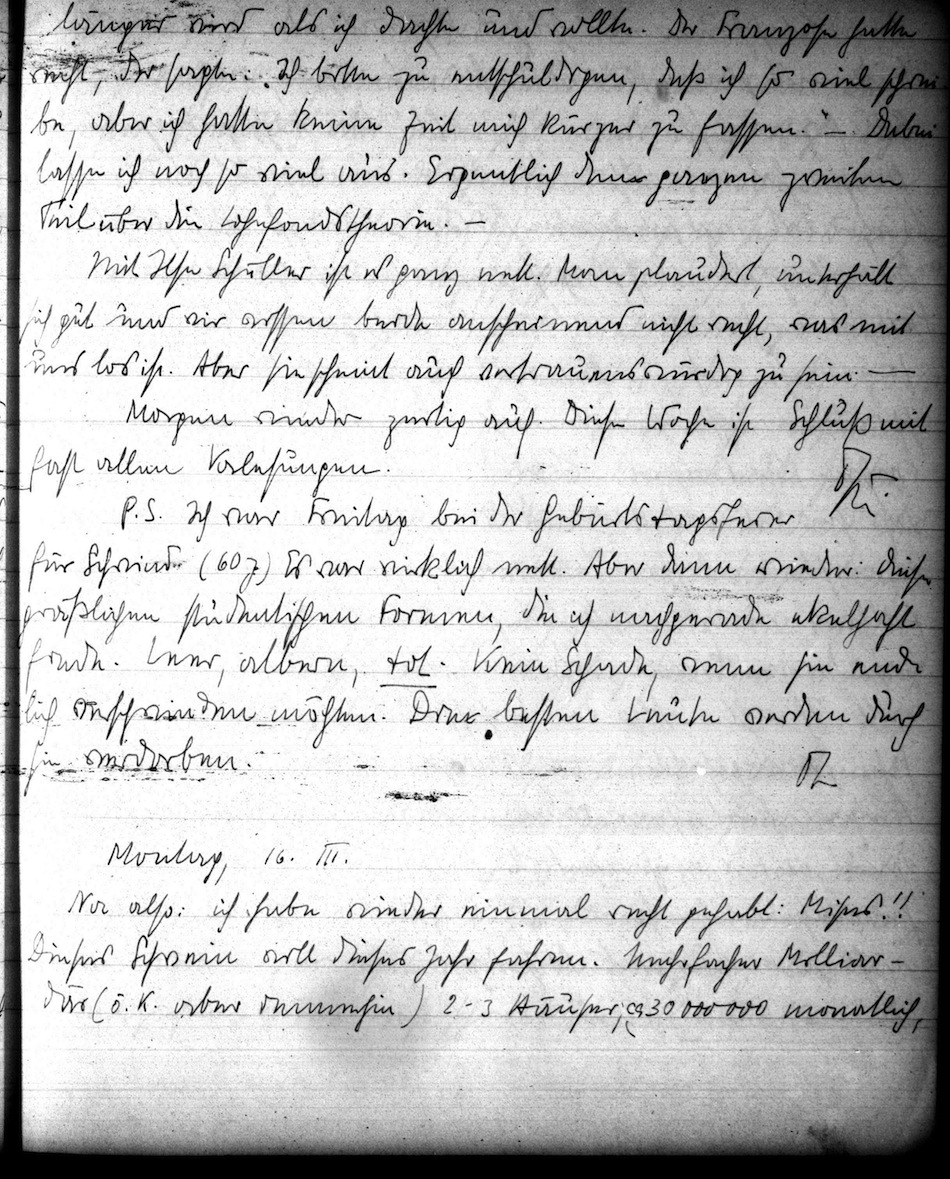 länger wird als ich dachte und wollte. Der Franzose hatte
recht, der sagte: Ich bitte zu entschuldigen, daß ich so viel schrei
be, aber ich hatte keine Zeit mich kürzer zu fassen." – Dabei
lasse ich noch so viel aus. Eigentlich den ganzen zweiten
Teil über die Lohnfondstheorie. –
Mit Ilse Schüller ist es ganz nett. Man plaudert, unterhält
sich gut und wir wissen beide anscheinend nicht recht, was mit
uns los ist. Aber sie scheint auch vertrauenswürdig zu sein. —
Morgen wieder zeitig auf. Diese Woche ist Schluß mit
fast allen Vorlesungen.
P.S. Ich war Freitag bei der Geburtstagsfeier
für (60 J.) Es war wirklich nett. Aber dann wieder: diese
gräßlichen studentischen Formen, die ich nachgerade ekelhaft
finde. Leer, albern, tot. Kein Schade, wenn sie end-
lich verschwinden möchten. Die besten Leute werden durch
sie verdorben.
Montag, 16. III.
Na also: ich habe wieder einmal recht gehabt: Mises!!
Dieses Schwein will dieses Jahr fahren. Mehrfacher Milliar-
där (ö. K. aber immerhin) 2-3 Häuser, ca 30 000 000 monatlich,